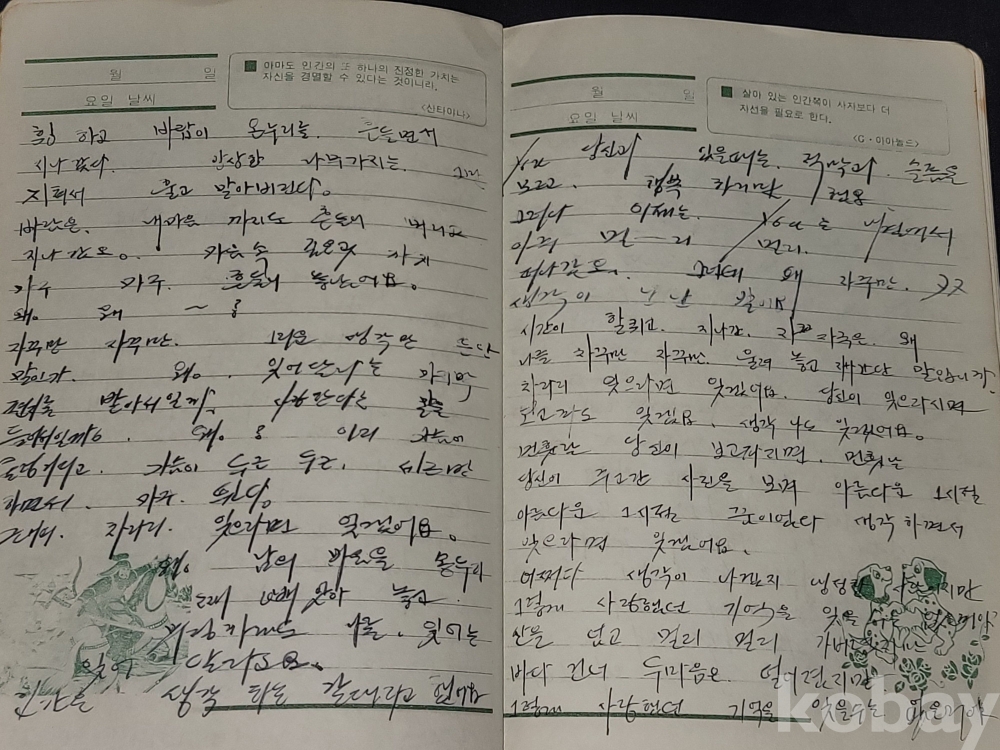 월 일
요일 날씨
■ 아마도 인간의 또 하나의 진정한 가치는
자신을 경멸할 수 있다는 것이니라.
<산타야나>
휭 하고 바람이 온누리를 흔들면서
지나 갔다. 앙상한 나무가지는
지쳐서 울고 말아버린다.
바람은 내마음 까지도 흔들어
지나 갔오. 가슴 속 깊은곳 까지
마구 마구 흔들어 놓았어요.
왜. 왜 ~ ?
자꾸만 자꾸만. 그리운 생각만 든단
말인가. 왜. 잊어 단니는
받아서일까. 사랑한다는 말을
들어서일까요. 왜. ? 이리 가슴이
가슴이 두근 두근.
하면서. 마구 뛴다.
그대여. 차라리. 잊으라면 잊겠어요.
왜. 남의 마음을 몽두리
놓고
나를. 잊어
달라고요.
생각 하는 갈대라고 했어요
월 일
요일 날씨
■ 살아 있는 인간쪽이 사자보다 더
자선을 필요로 한다.
<G·이아놀드>
You 당신과 있을때는. 적막과 슬픔을
모르고. 행복 하기만 했용
그러나 이제는. You는 내곁에서
아주 먼— 리 멀리.
떠나갔오. 그런데 왜 자꾸만. 자꾸
생각이 난 날 말이다
시간이 할퀴고. 지나간. 자국은. 왜
나를 자꾸만 자꾸만. 울려 놓고 말입니까?
차라리 잊으라면 잊겠어요. 당신이 잊으라시면
보고파도 잊겠어요. 생각 나도 잊겠어요.
먼훗날 당신이 보고파지면. 먼훗날
당신이 주고간 사진을 보며 아름다운 그시절
아름다운 그시절 꿈이었다 생각 하면서
잊으라면 잊겠어요.
어쩌다 생각이 나겠지 냉정한 사람이지만
그렇게 사랑했던 기억을 잊을 수는 없을거야
산을 넘고 멀리 멀리 가버렸지만
바다 건너 두마음은 떨어졌지만
그렇게 사랑했던 기억을 잊을수는 없을거야
kobay